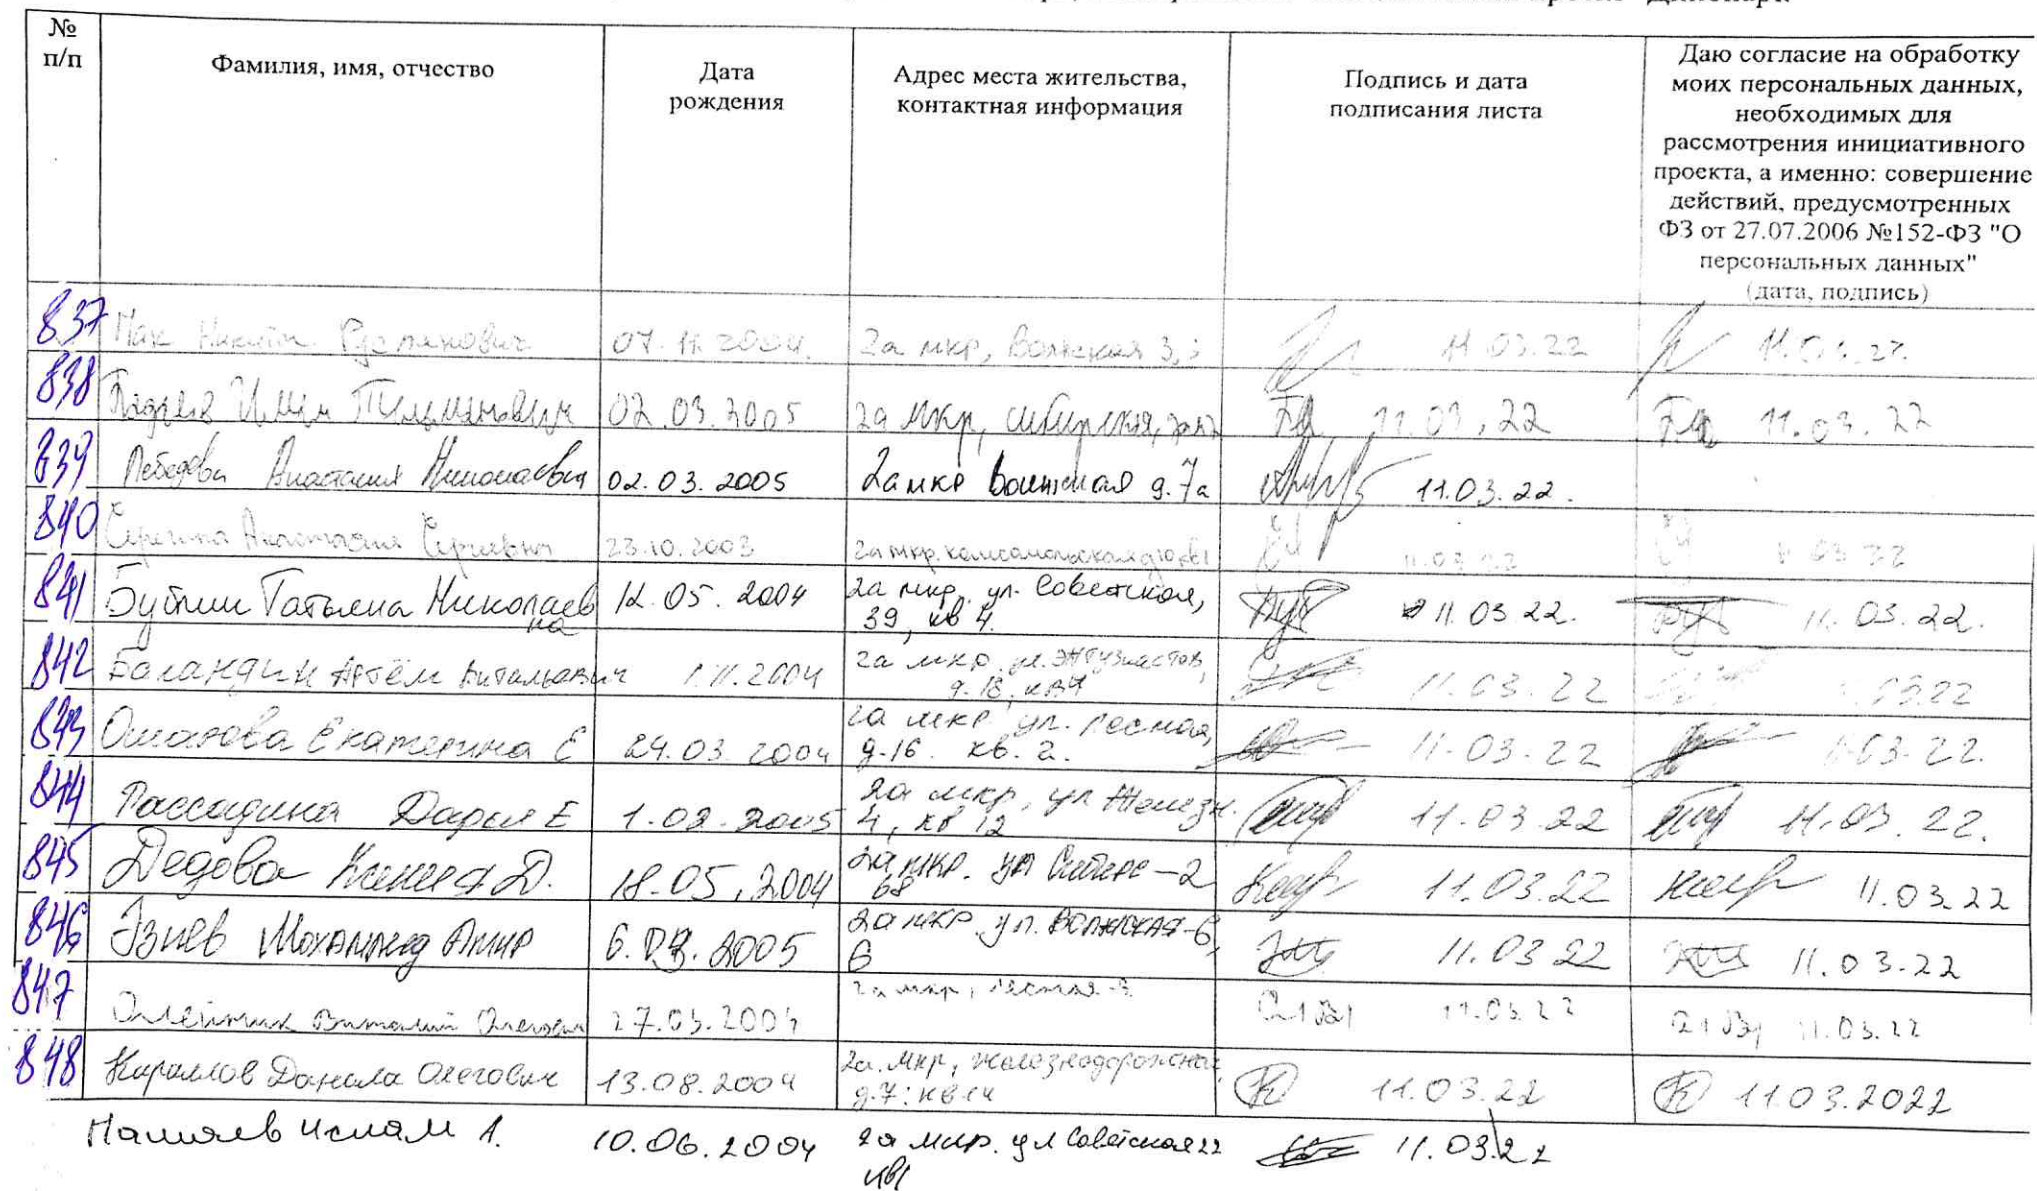 №
п/п
Фамилия, имя, отчество
Дата
рождения
Адрес места жительства,
контактная информация
Подпись и дата
подписания листа
Даю согласие на обработку
моих персональных данных,
необходимых для
рассмотрения инициативного
проекта, а именно: совершение
действий, предусмотренных
ФЗ от 27.07.2006 №152-ФЗ "О
персональных данных"
(дата, подпись)
837 Пак Никита Русланович 07.11.2004. 2а мкр, Волжская 3, 11.03.22 11.03.22.
838 02.03.2005 2а мкр, Сибирская, 11.03.22 11.03.22
839 Лебедева Анастасия Николаевна 02.03.2005 2а мкр д.7а 11.03.22.
840 Анастасия Сергеевна 23.10.2003 2а мкр. комсомольская д10 кв1 11.03.22 11.03.22
841 Татьяна Николаев 12.05.2004 2а мкр. ул. Советская, 11.03.22. 11.03.22.
на 39, кв 4.
842 Баландин Артём Витальевич 1.11.2004 2а мкр. ул. Энтузиастов, 11.03.22 03.22
д.18, кв4
843 Екатерина Е 24.03.2004 2а мкр ул. Лесная, 11.03.22 11.03.22.
д.16 кв. 2.
844 Рассадина Дарья Е 1.02.2005 2а мкр, ул Железн. 11.03.22 11.03.22.
4, кв 12
845 Дедова Ксения Д. 18.05.2004 2а мкр. ул Сибирс-2 11.03.22 11.03.22
68
846 Мохаммед Амир 6.09.2005 2а мкр. ул. Волжская-6, 11.03.22 11.03.22
6
847 Олейник Виталий Олегович 27.03.2004 2а мкр, Лесная-3 11.03.22 11.03.22
848 Данила Олегович 13.08.2004 2а. мкр, железнодорожная 11.03.22 11.03.2022
д.7; кв14
Ислам 1. 10.06.2004 2а мкр. ул Советская 22 11.03.22
кв1